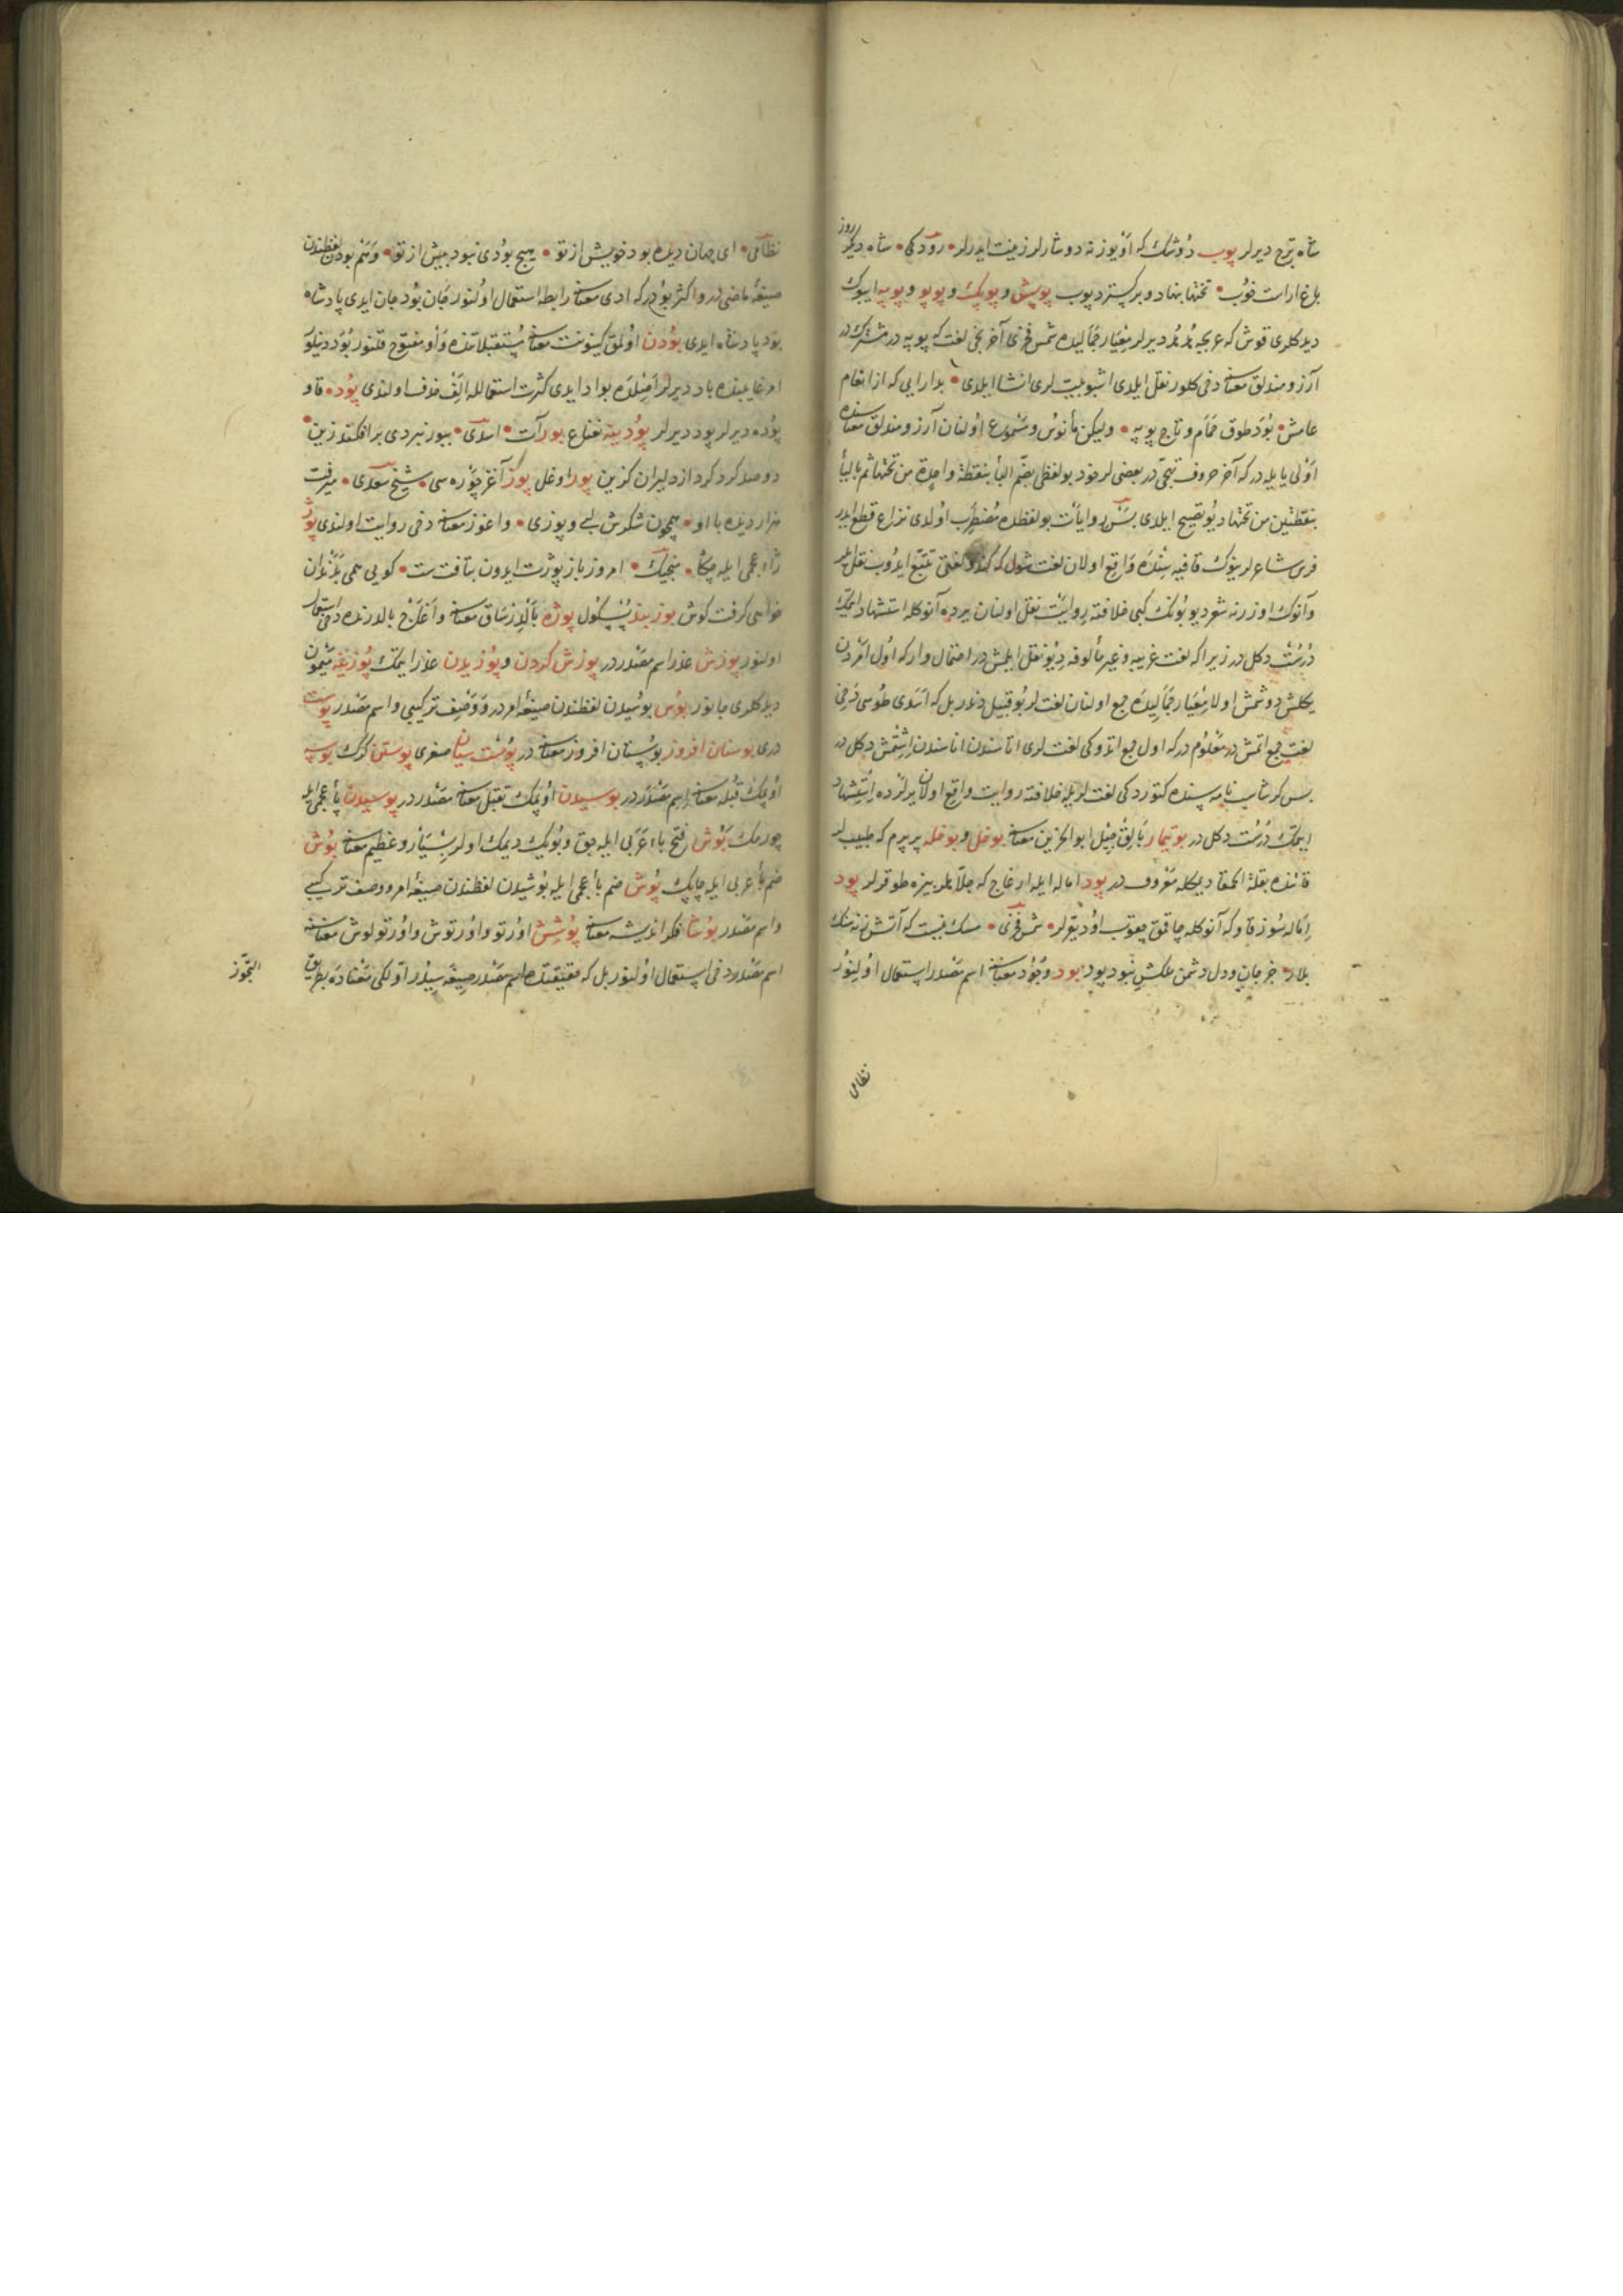 شاه ترج ديرلر پوب دوشك كه اويوزنه دوشارلر زينت ايدرلر • رودكى • شاه ديكر روز
باغ اراست خوب • تختها بنهاد و بر كسترد پوب پوپش و پوپك و پوپو و پوپه ايبوك
ديدكلرى قوش كه عربجه هدهد ديرلر معيار جماليده شمس فخرى آخر بخى لغت كه پوپه در مشتركدر
آرزومندلق معناسنه دخى كلور نقل ايلدى اشبو بيت لرى انشا ايلدى • بدارايى كه از انعام
عامش • بود طوق حمام و تاج پوپه • وليكن مأنوس و مسموع اولنان آرزومندلق معناسنده
اولى يايله در كه آخر حروف تهجى در بعضى لر خود بو لفظى بضم البأ بنقطة واحدة من تحتها ثم باليأ
بنقطتين من تحتها ديو تصحيح ايلدى بس روايات بو لفظده مضطرب اولدى نزاع قطع ايدر
فرس شاعرلرينوك قافيه سنده واقع اولان لغت شول كه كندو لغتى تتبع ايدوب نقل ايلر
وآنوك اوزرنه شعر ديو بونك كبى خلافنه روايت نقل اولنان يرده آنوكله استشهاد ايتمك
درست دكل در زيرا كه لغت غريبه و غير مألوفه ديو نقل ايلمش در احتمال وار كه اول آمردن
يكلش دوشمش اولا معيار جماليده جمع اولنان لغت لر بو قبيل دندر بل كه اسدى طوسى دخى
لغت جمع اتمش در معلوم در كه اول جمع اتدوكى لغت لرى اتاسندن اناسندن اشتمش دكل در
بس كرشاسب نامه سنده كتوردكى لغت لريله خلافنه روايت واقع اولان يرلرده استشهاد
ايتمك درست دكل در بوتيمار بالقجل ابو الحزين معناسنه بوخل و بوخله پرپرم كه طبيب لر
قاتنده بقلة الحمقا ديمكله معروف در پود اماله ايله ارغاج كه جلاهلر بيزه طوقرلر پود
اماله سوز قاو كه آنوكله چاقمق چقوب اود يقرلر • شمس فخرى • مسك نيست كه آتش زنه سنك
بلارد • جز جان و دل دشمن عكسش نبود پود بود وجود معناسنه اسم مصدر استعمال اولنور
نظامى
نظامى • اى جهان ديده بود خويش از تو • هيچ بودى نبود پيش از تو • و هم بودن لفظندن
صيغۀ ماضى در و اكثر بودر كه ادى معناسنه رابطه استعمال اولنور جان بود جان ايدى پادشاه
بود پادشاه ايدى بودن اولمق كينونت معناسنه مستقبلاتنده واو مفتوح قلنور بود دينلور
امر غايبنده باد ديرلر اصلده بواد ايدى كثرت استعماله الف حذف اولندى پود • قاو
پوده ديرلر پود ديرلر پودينه نعناع بور آت • اسدى • ببور نبردى برافكند زين •
دوصد كرد كرد از دليران كزين پور اوغل پوز آغز چوره سى • شيخ سعدى • ميرفت
هزار ديده با او • همچون شكرش لب و پوزى • و اغوز معناسنه دخى روايت اولندى پوژ
ژاء عجمى ايله چكاڭ • منجيك • امروز باز پوژت ايدون بتافت ست • كويى همى بدندان
خواهى كرفت كوش بوزبند پسكول پوزه بالدر ساق معناسنه و آغاج بالدرنده دخى استعمال
اولنور پوزش عذر اسم مصدر در پوزش كردن و پوزيدن عذر ايتمك پوزينه ميمون
ديدكلرى جانور پوس پوسيدن لفظندن صيغۀ امر در و وصف تركيبى و اسم مصدر پوست
درى بوستان افروز بوستان افروز معناسنه در پوست سيتان صغرى پوستين كرك بوسه
اوپمك قبله معناسنه اسم مصدر در بوسيدن اوپمك تقبل معناسنه مصدر در پوسيدن پأ عجمى ايله
چورمك بوش فتح باء عربى ايله جوق و بويك ديمك اولر بسيار و عظيم معناسنه بوش
ضم بأ عربى ايله چاپك پوش ضم بأ عجمى ايله پوشيدن لفظندن صيغۀ امر و وصف تركيبى
و اسم مصدر بوشا فكر انديشه معناسنه پوشش اورتو و اورتوش و اورتولوش معناسنه
اسم مصدر دخى استعمال اولنور بل كه حقيقتده اسم مصدر صيغه سيدر اولكى معناده بطريق
التجوز